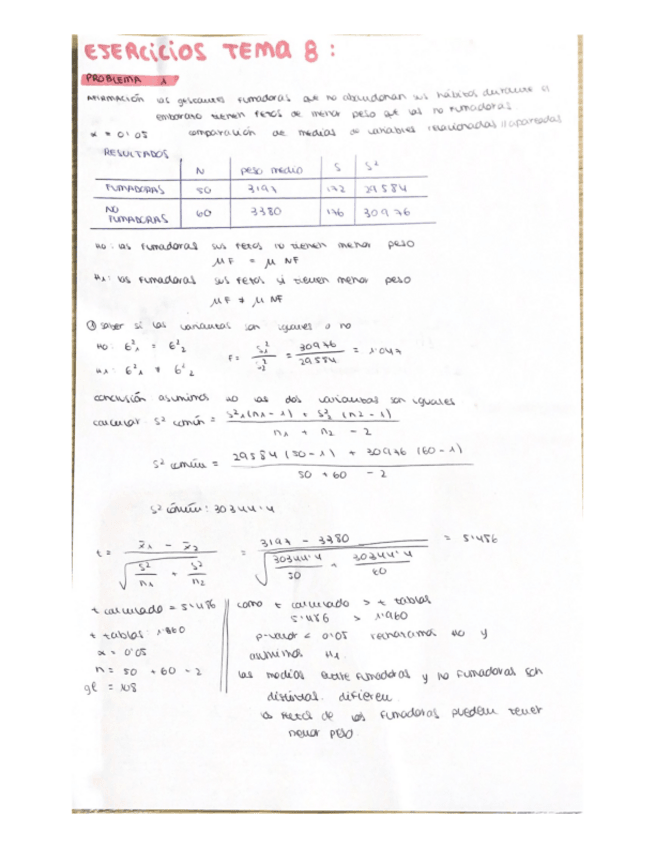 EJERCICIOS TEMA 8:
PROBLEMA 1
AFIRMACIÓN las gestantes fumadoras que no abandonan sus hábitos durante el
embarazo tienen fetos de menor peso que las no fumadoras
α = 0'05 comparación de medias de variables relacionadas // apareadas
RESULTADOS
N peso medio S S²
FUMADORAS 50 3197 172 29584
NO FUMADORAS 60 3380 176 30976
H0: las fumadoras sus fetos no tienen menor peso
μF = μNF
H1: las fumadoras sus fetos si tienen menor peso
μF ≠ μNF
① saber si las varianzas son iguales o no
H0: σ²1 = σ²2
F = = 30976 / 29584 = 1'047
H1: σ²1 ≠ σ²2
conclusión asumimos las dos varianzas son iguales
calcular S² común = S²1(n1 - 1) + S²2(n2 - 1) / n1 + n2 - 2
S² común = 29584 (50 - 1) + 30976 (60 - 1) / 50 + 60 - 2
S² común: 30344'4
t = x̄1 - x̄2 / √(S²/n1 + S²/n2) = 3197 - 3380 / √(30344'4/50 + 30344'4/60) = 5'486
t calculado = 5'486
t tablas:
α = 0'05
n = 50 + 60 - 2
gl = 108
como t calculado > t tablas
5'486 > 1'960
p-valor < 0'05 rechazamos H0 y
asumimos H1.
las medias entre fumadoras y no fumadoras son
distintas. difieren
fetos de las fumadoras pueden tener
menor peso